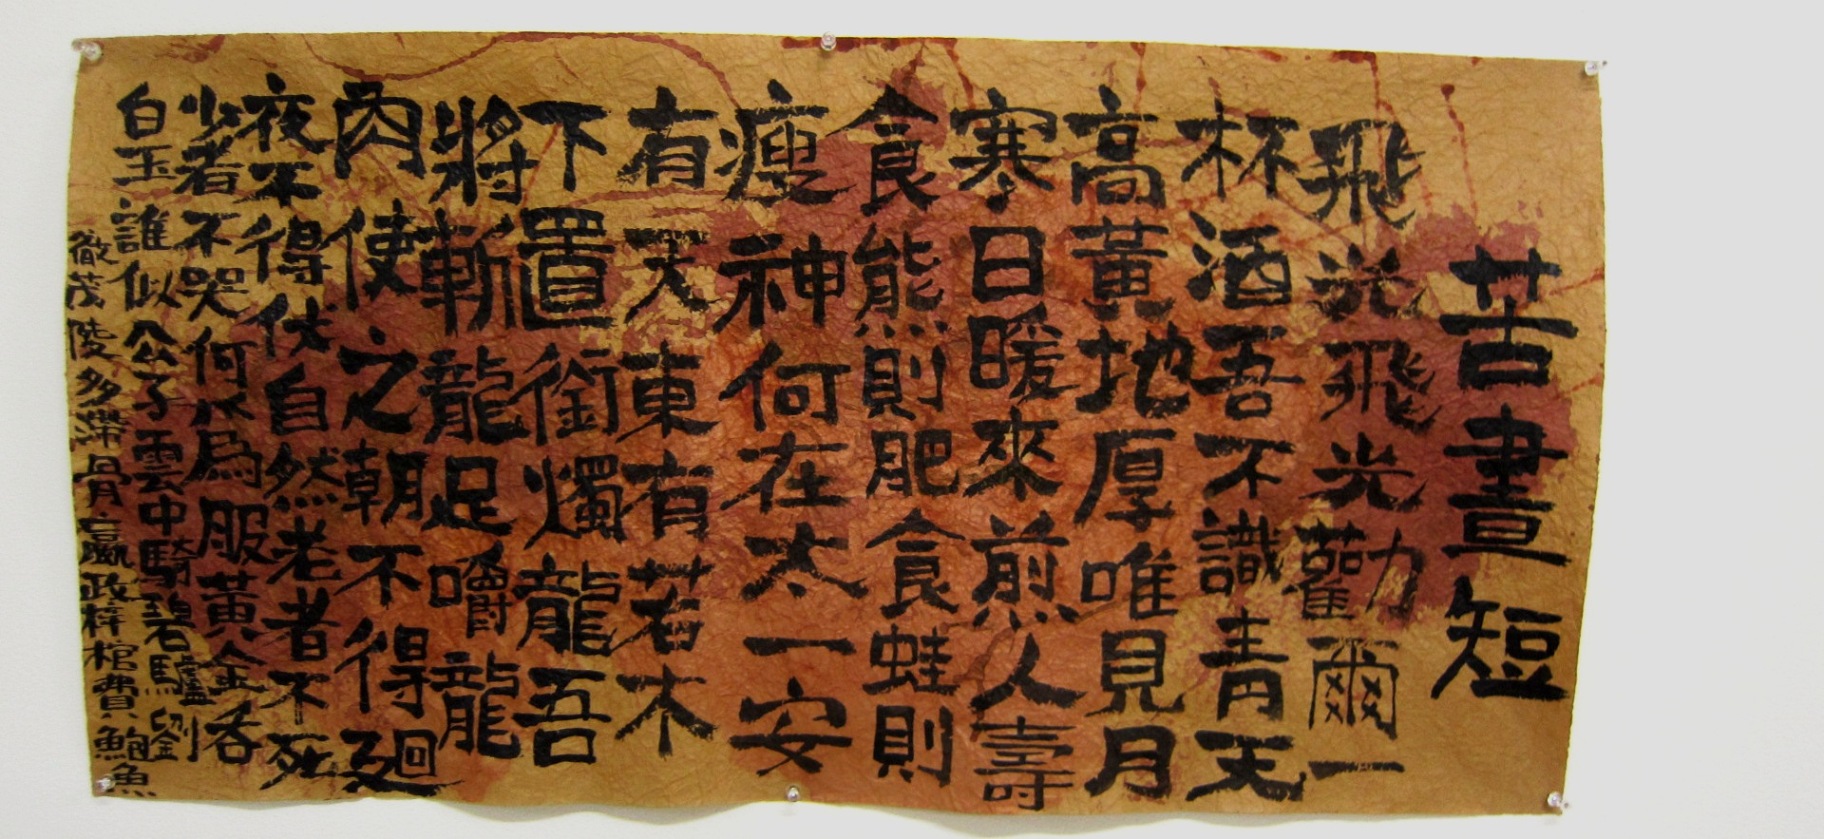 苦晝短
飛光飛光勸爾一
杯酒吾不識青天
高黃地厚唯見月
寒日暖來煎人壽
食熊則肥食蛙則
瘦神何在太一安
有天東有若木
下置銜燭龍吾
將斬龍足嚼龍
肉使之朝不得廻
夜不得伏自然老者不死
少者不哭何為服黃金吞
白玉誰似公子雲中騎碧驢劉
徹茂陵多滯骨嬴政梓棺費鮑魚